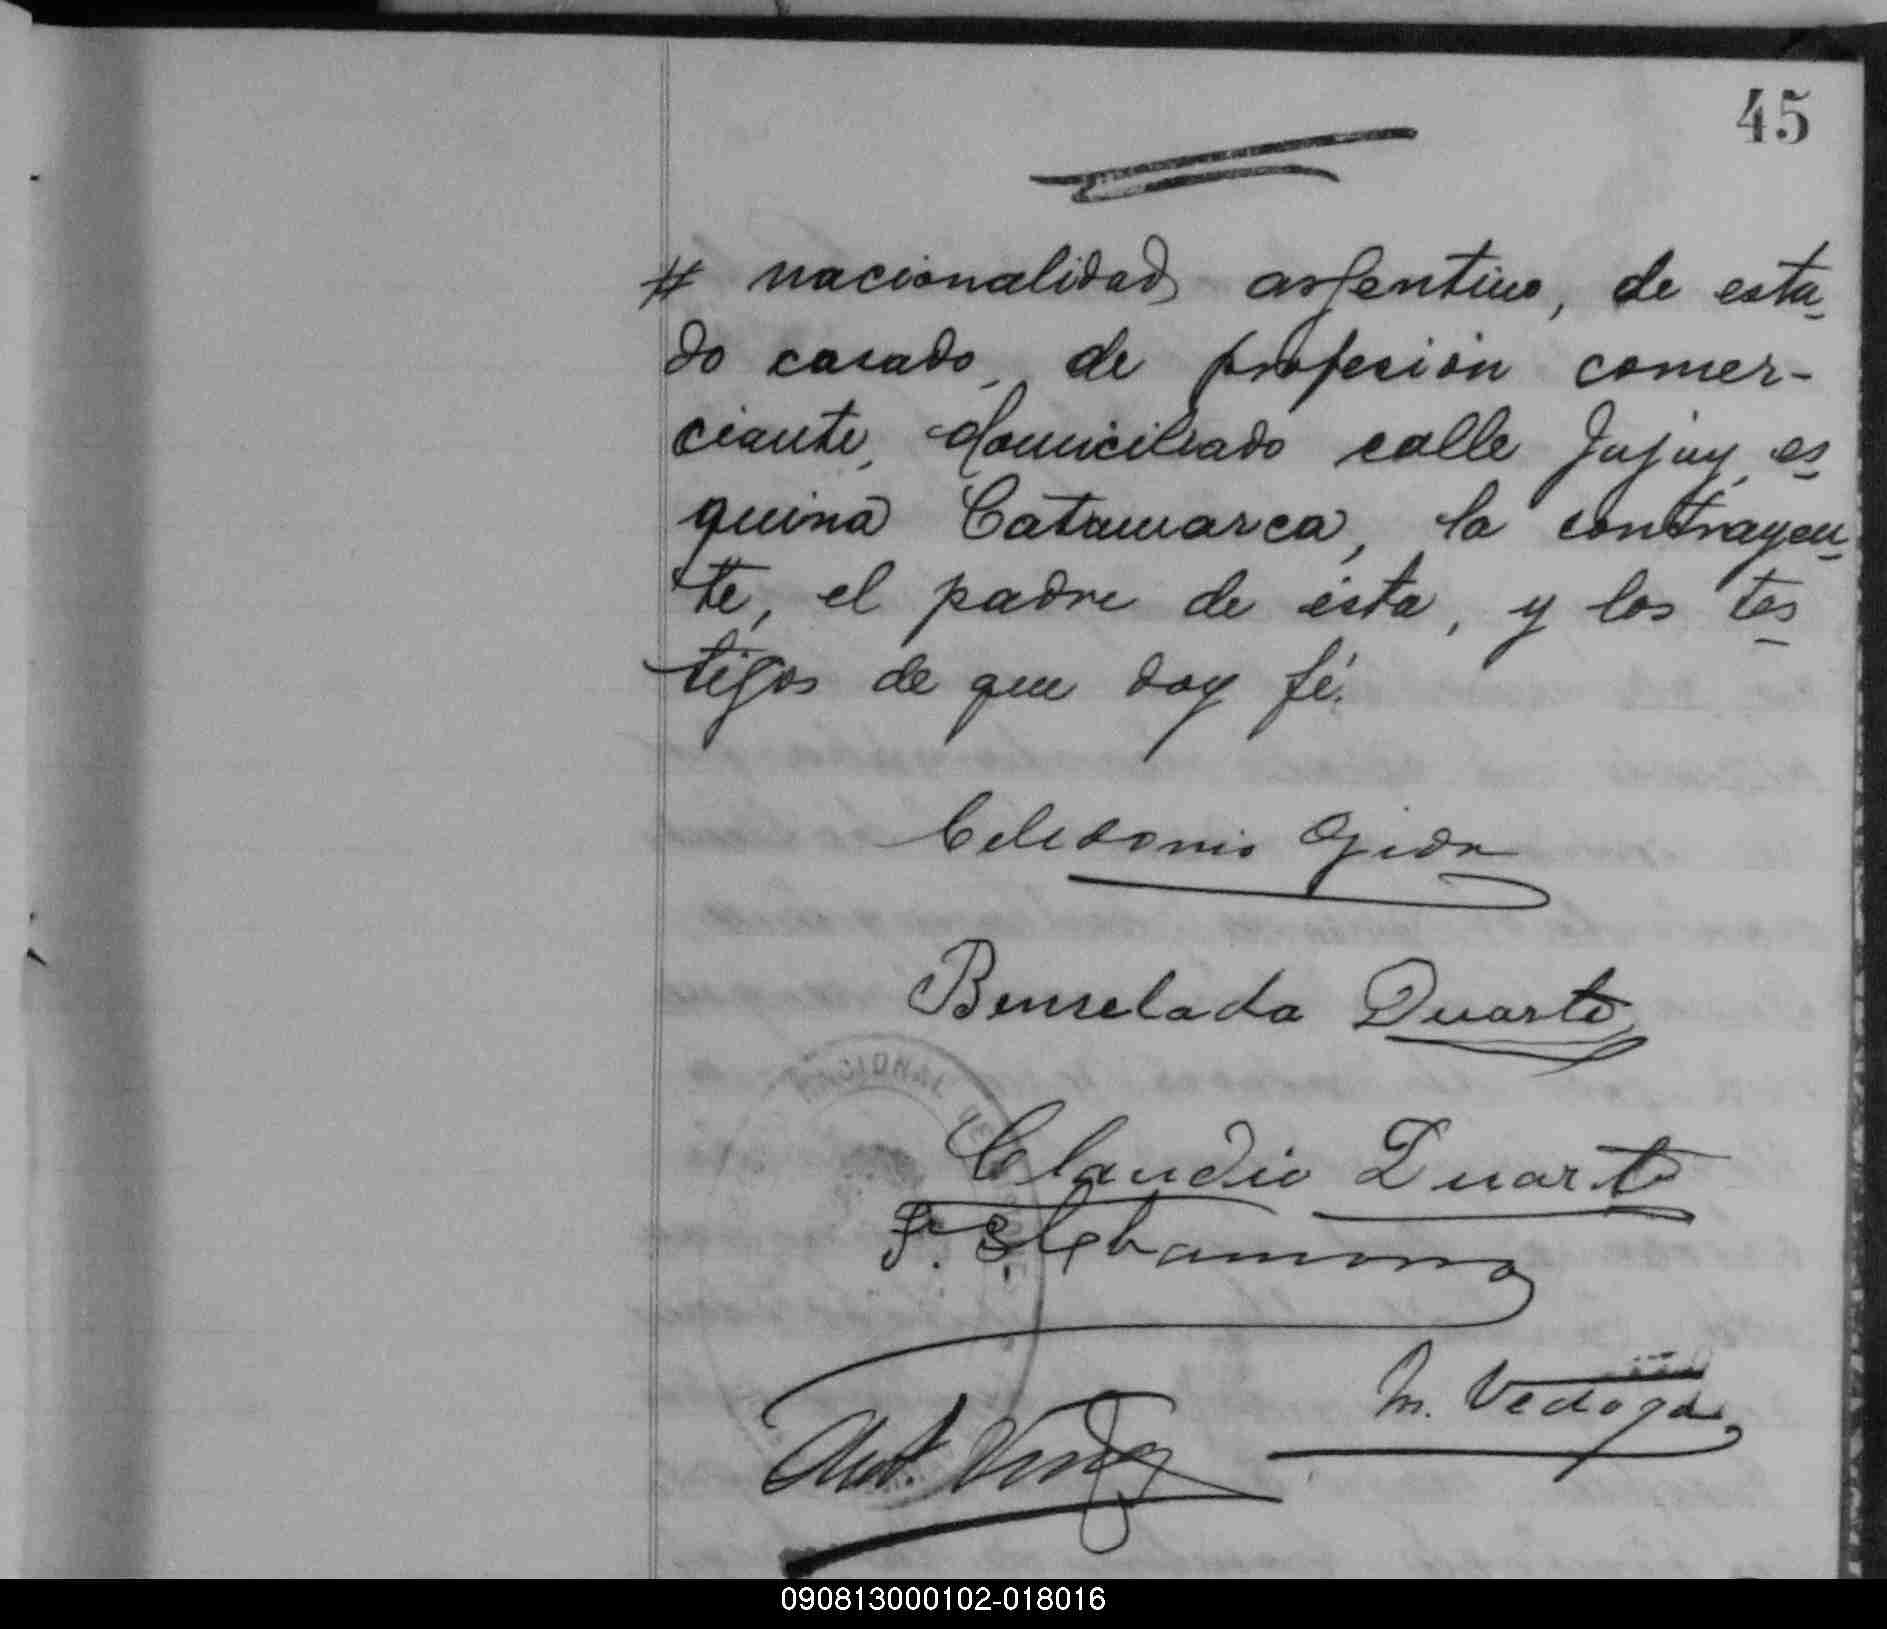 45
# nacionalidad argentino, de esta-
do casado, de profesión comer-
ciante, domiciliado calle Jujuy, es-
quina Catamarca, la contrayen-
te, el padre de ésta, y los tes-
tigos de que doy fé.
Celedonio Ojeda
Benselada Duarte
NACIONAL DE
Claudio Duarte
M. Vedoya
090813000102-018016